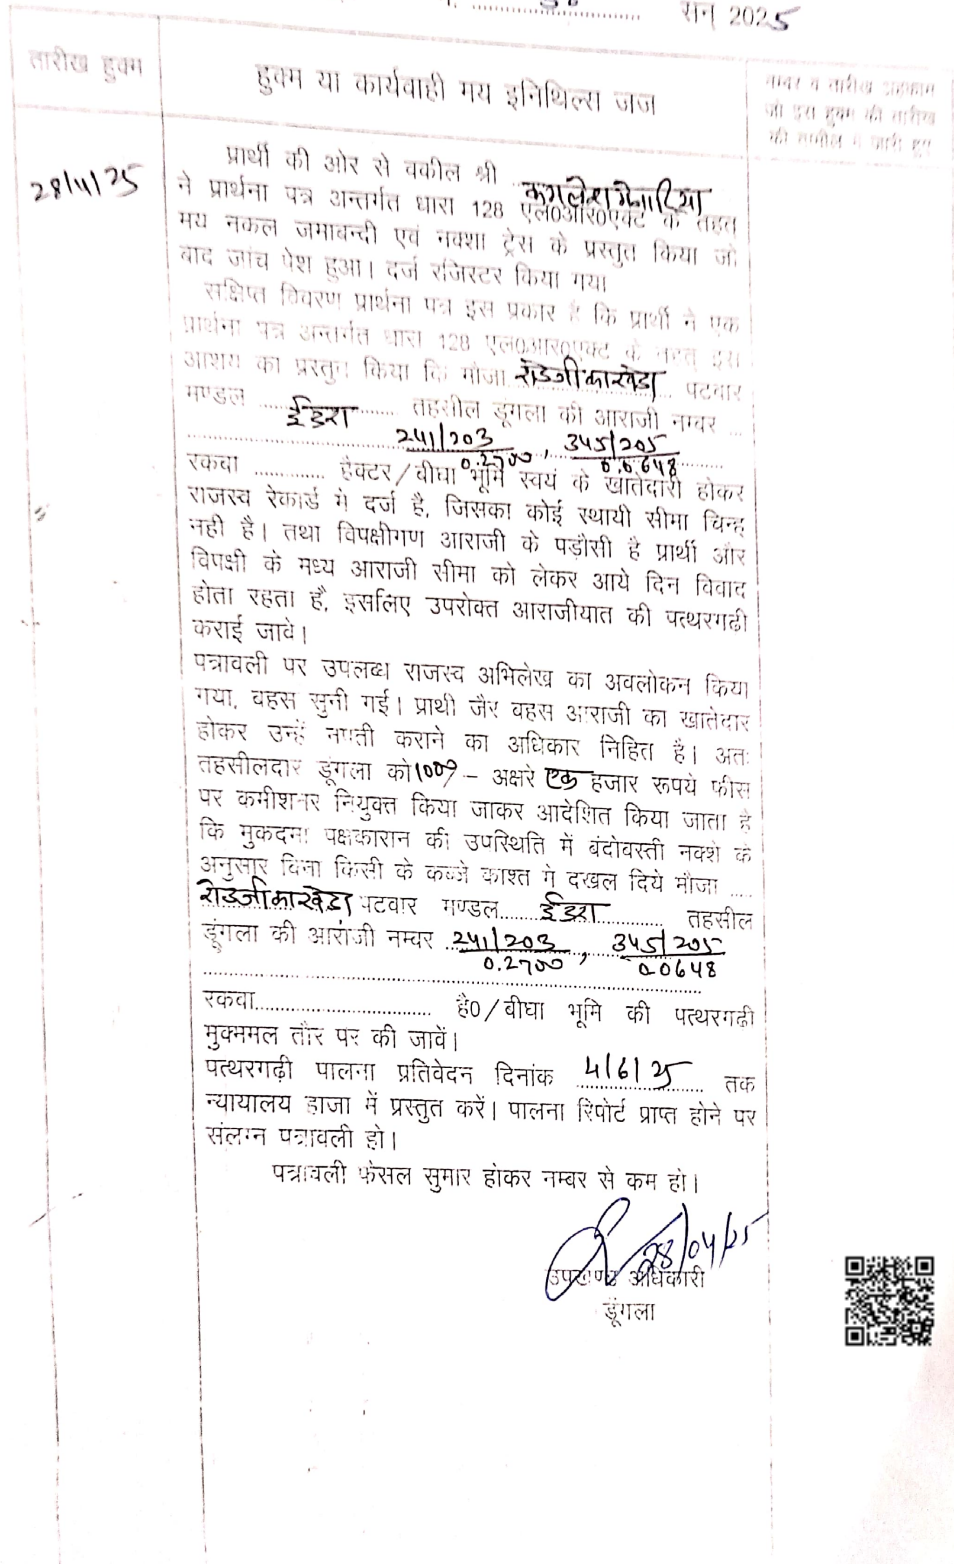 सन् 2025
तारीख हुक्म
हुक्म या कार्यवाही मय इनिथिल्स जज
नम्बर व तारीख अहकाम
जो इस हुक्म की तारीख
की तामील में जारी हुए
28/4/25
प्रार्थी की ओर से वकील श्री
ने प्रार्थना पत्र अन्तर्गत धारा 128 एल0आर0एक्ट के तहत
मय नकल जमाबन्दी एवं नक्शा ट्रेस के प्रस्तुत किया जो
बाद जांच पेश हुआ। दर्ज रजिस्टर किया गया
संक्षिप्त विवरण प्रार्थना पत्र इस प्रकार है कि प्रार्थी ने एक
प्रार्थना पत्र अन्तर्गत धारा 128 एल0आर0एक्ट के तहत इस
आशय का प्रस्तुत किया कि मौजा रोडजीकाखेडा पटवार
मण्डल ईडरा तहसील डूंगला की आराजी नम्बर ...
241/203 , 345/205
0.2700 0.0648
रकवा ............ हैक्टर/बीघा भूमि स्वयं के खातेदारी होकर
राजस्व रेकार्ड में दर्ज है, जिसका कोई स्थायी सीमा चिन्ह
नही है। तथा विपक्षीगण आराजी के पड़ौसी है प्रार्थी और
विपक्षी के मध्य आराजी सीमा को लेकर आये दिन विवाद
होता रहता है, इसलिए उपरोक्त आराजीयात की पत्थरगढी
कराई जावे।
पत्रावली पर उपलब्ध राजस्व अभिलेख का अवलोकन किया
गया, वहस सुनी गई। प्राथी जैर वहस आराजी का खातेदार
होकर उन्हें नपती कराने का अधिकार निहित है। अतः
तहसीलदार डूंगला को - अक्षरे एक हजार रूपये फीस
पर कमीशनर नियुक्त किया जाकर आदेशित किया जाता है
कि मुकदमा पक्षकारान की उपस्थिति में बंदोवस्ती नक्शे के
अनुसार विना किसी के कब्जे काश्त में दखल दिये मौजा ....
रोडजीकाखेडा पटवार मण्डल....... ईडरा ............ तहसील
डूंगला की आराजी नम्बर 241/203 , 345/205
0.2700 0.0648
रकवा............................... है0/बीघा भूमि की पत्थरगढी
मुक्ममल तौर पर की जावें।
पत्थरगढ़ी पालना प्रतिवेदन दिनांक 4/6/25 तक
न्यायालय हाजा में प्रस्तुत करें। पालना रिपोर्ट प्राप्त होने पर
संलग्न पत्रावली हो।
पत्रावली फेसल सुमार होकर नम्बर से कम हो।
28/04/25
उपखण्ड अधिकारी
डूंगला